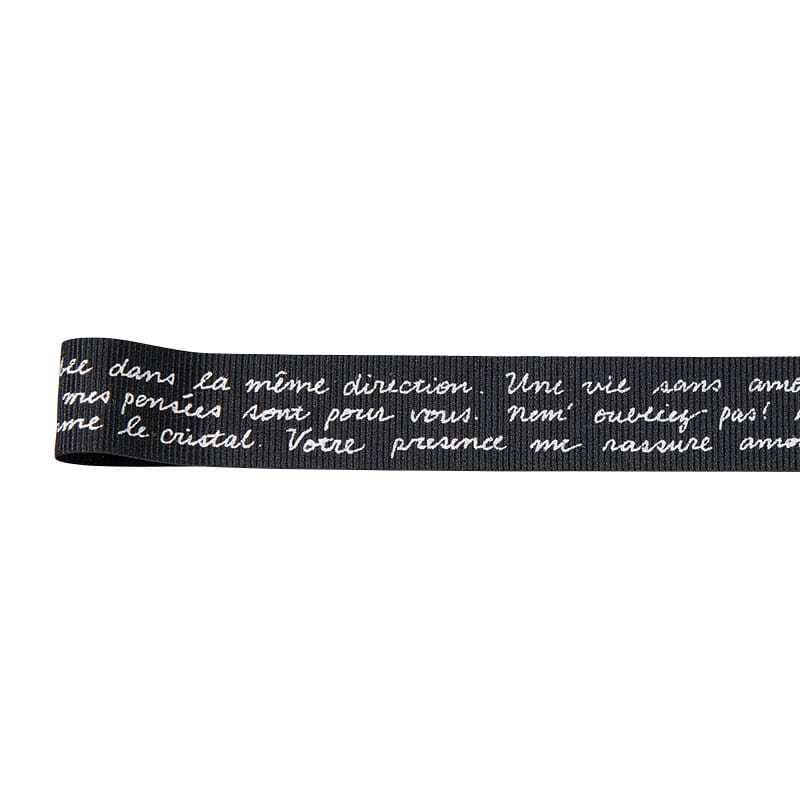 dans la même direction. Une vie sans amo
mes pensées sont pour vous. Nem' oubliez pas!
me le cristal. Votre presence me rassure amo